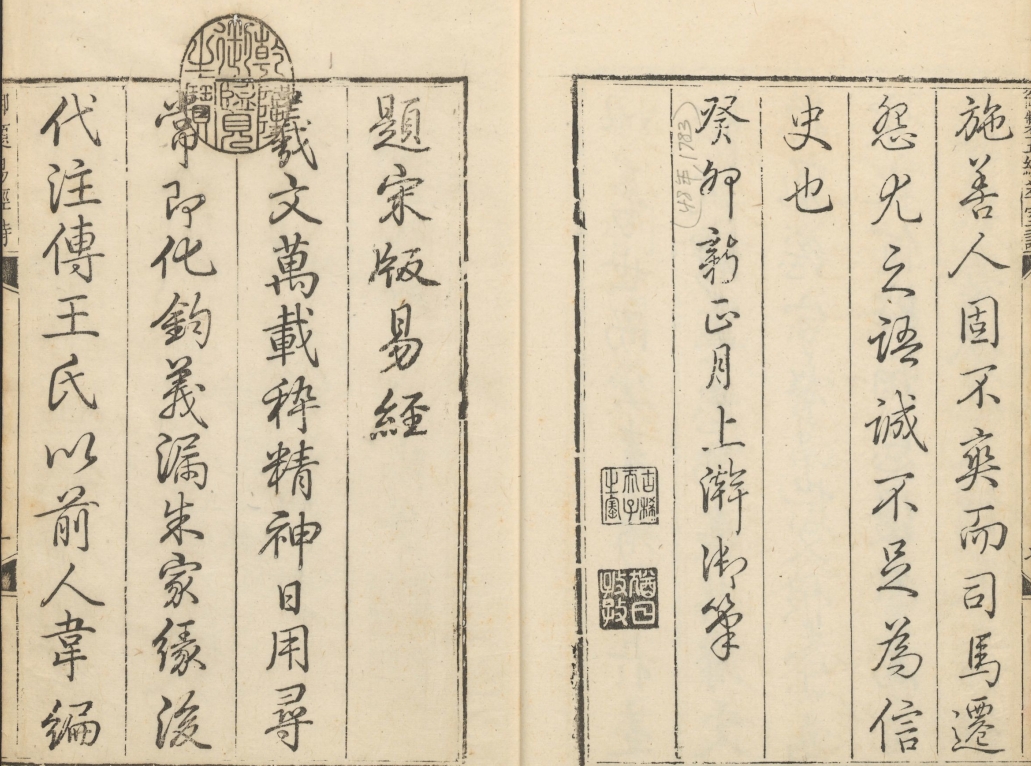 施善人固不爽而司馬遷
怨尤之語誠不足為信
史也
癸卯新正月上澣御筆
48年1783
古稀天子之寶
猶日孜孜
乾隆御覽之寶
題宋版易經
羲文萬載稡精神日用尋
常即化鈞義漏朱家緣後
代注傳王氏以前人韋編